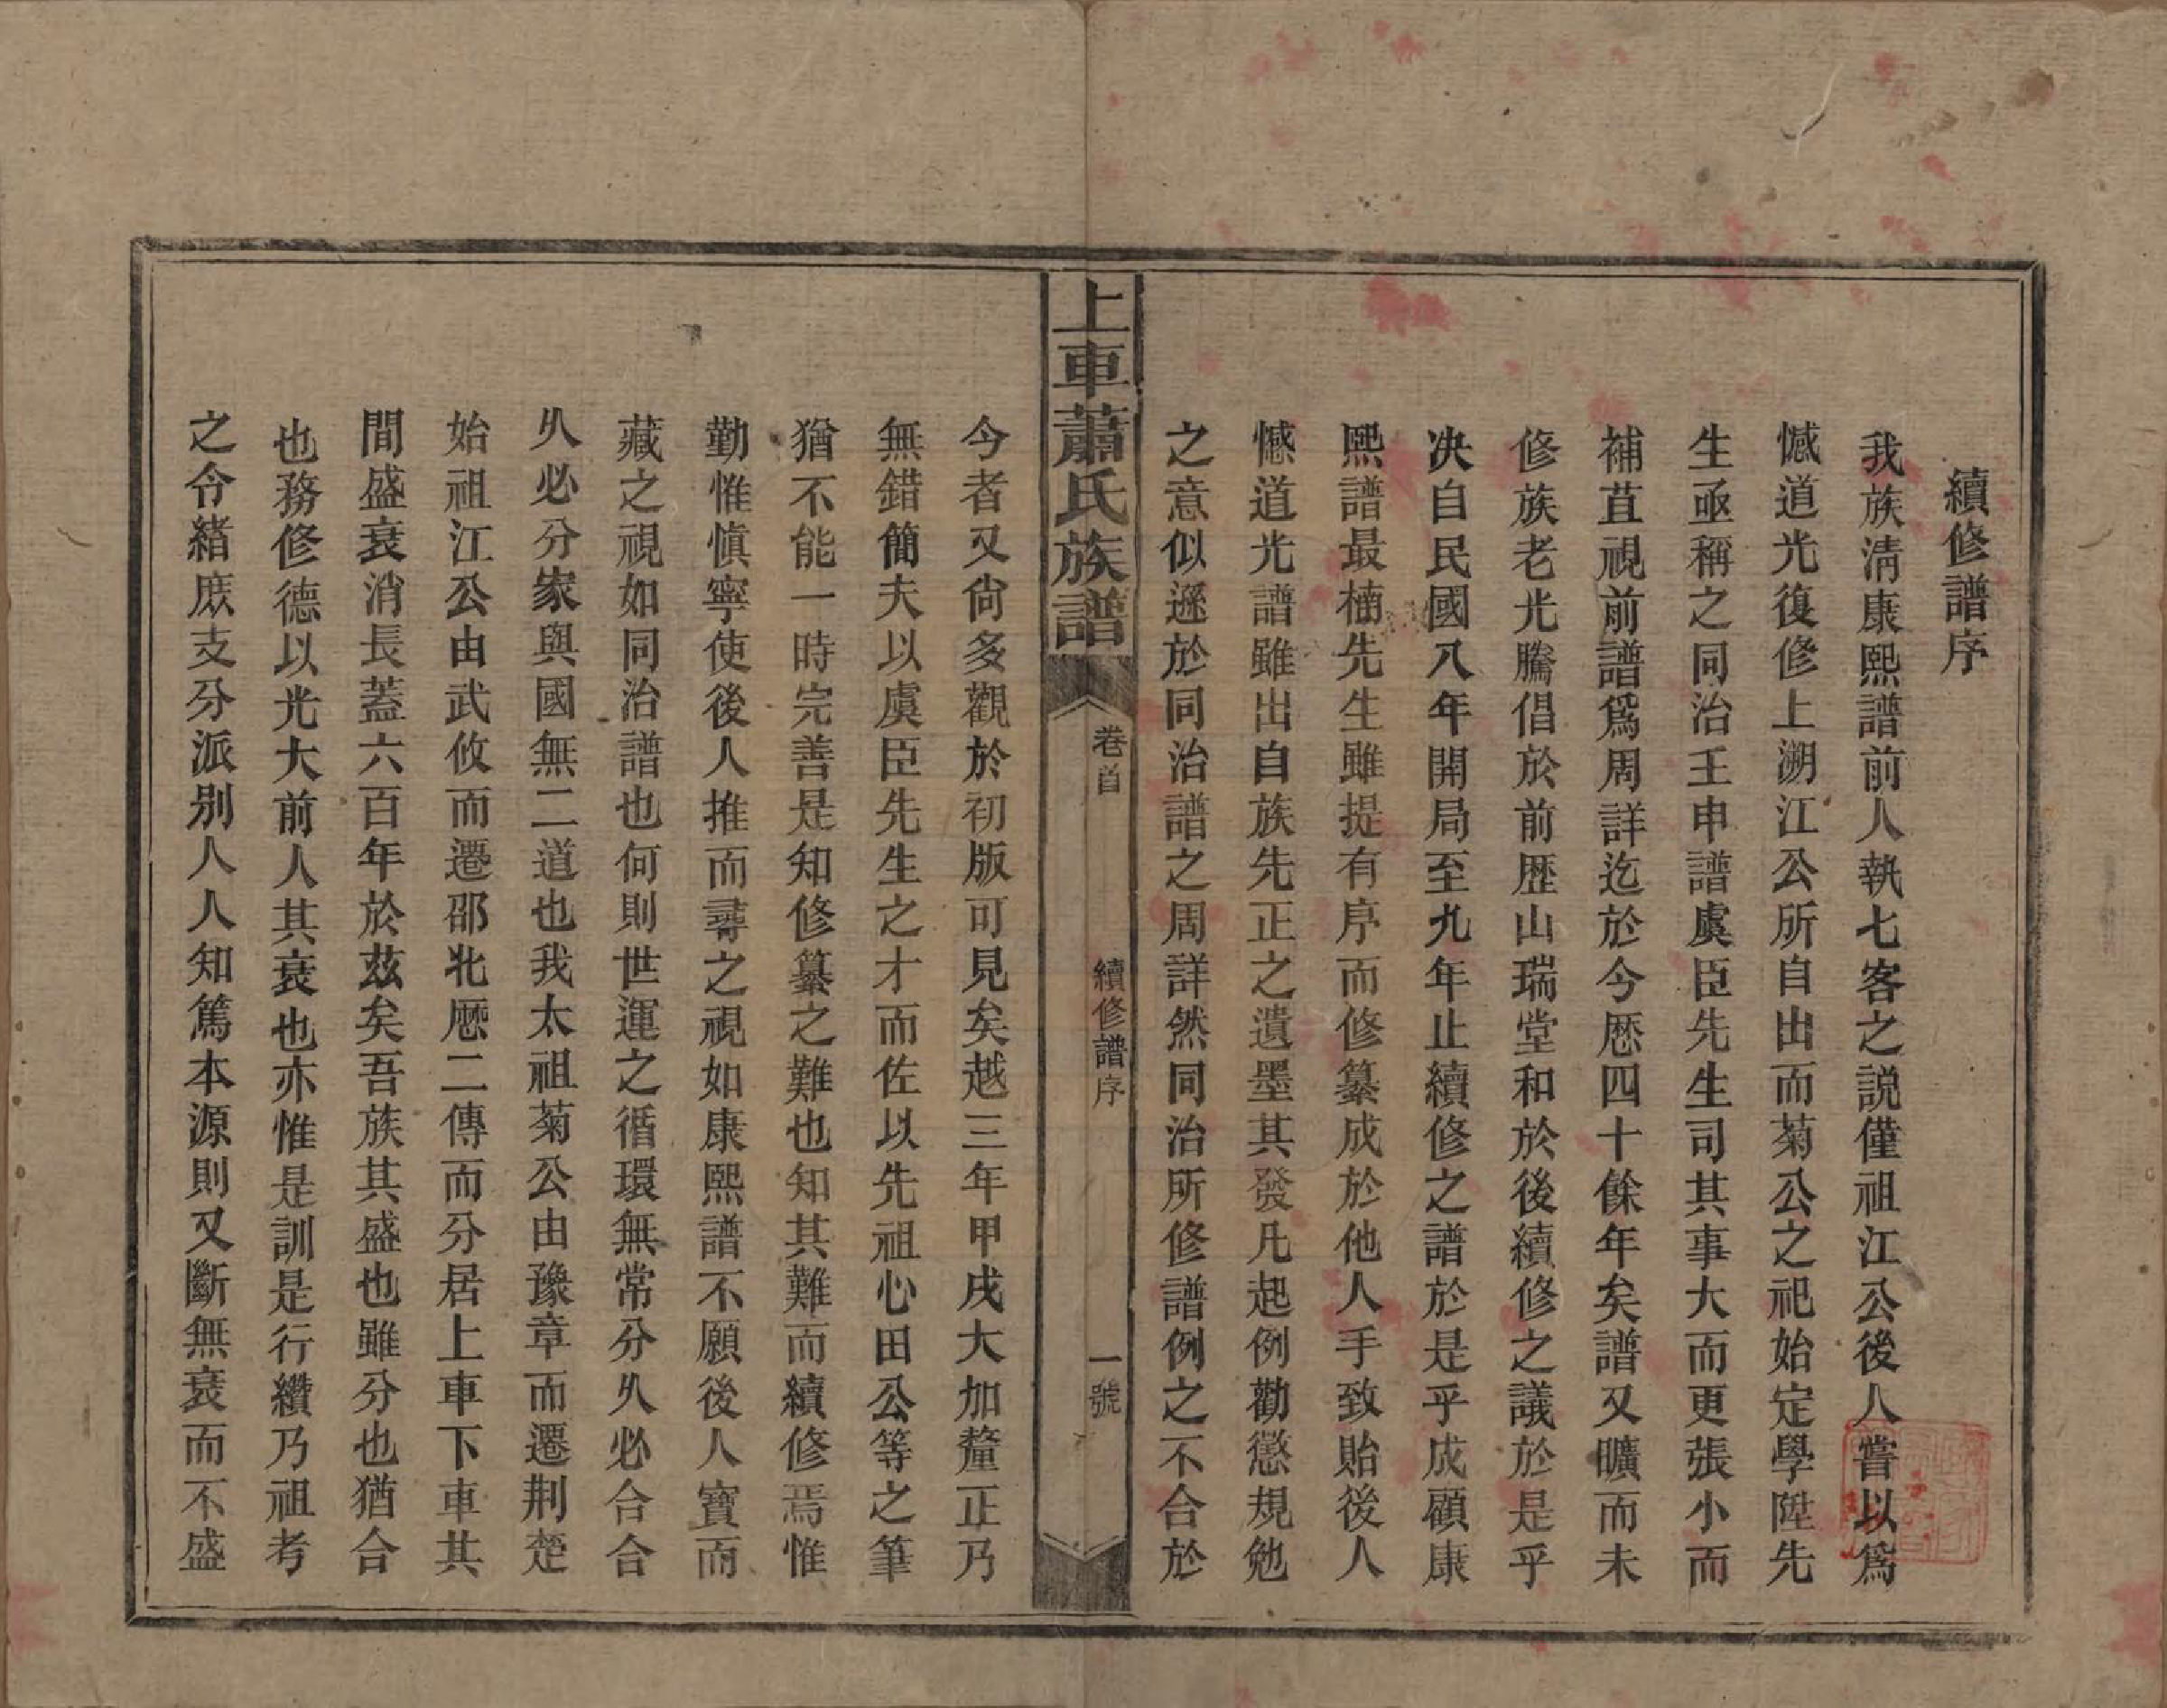 續修譜序
我族淸康熙譜前人執七客之説僅祖江公後人嘗以爲
憾道光復修上溯江公所自出而菊公之祀始定學陞先
生亟稱之同治壬申譜虞臣先生司其事大而更張小而
補苴視前譜爲周詳迄於今厯四十餘年矣譜又曠而未
修族老光騰倡於前歴山瑞堂和於後續修之議於是乎
决自民國八年開局至九年止續修之譜於是乎成顧康
熙譜最楠先生雖提有序而修纂成於他人手致貽後人
憾道光譜雖出自族先正之遺墨其發凡起例勸懲規勉
之意似遜於同治譜之周詳然同治所修譜例之不合於
上車蕭氏族譜
卷首
續修譜序
一號
今者又尙多觀於初版可見矣越三年甲戌大加釐正乃
無錯簡夫以虞臣先生之才而佐以先祖心田公等之筆
猶不能一時完善是知修纂之難也知其難而續修焉惟
勤惟愼寧使後人推而尋之視如康熙譜不願後人寶而
藏之視如同治譜也何則世運之循環無常分久必合合
久必分家與國無二道也我太祖菊公由豫章而遷荆楚
始祖江公由武攸而遷邵北厯二傳而分居上車下車其
間盛衰消長蓋六百年於茲矣吾族其盛也雖分也猶合
也務修德以光大前人其衰也亦惟是訓是行纘乃祖考
之令緒庶支分派别人人知篤本源則又斷無衰而不盛